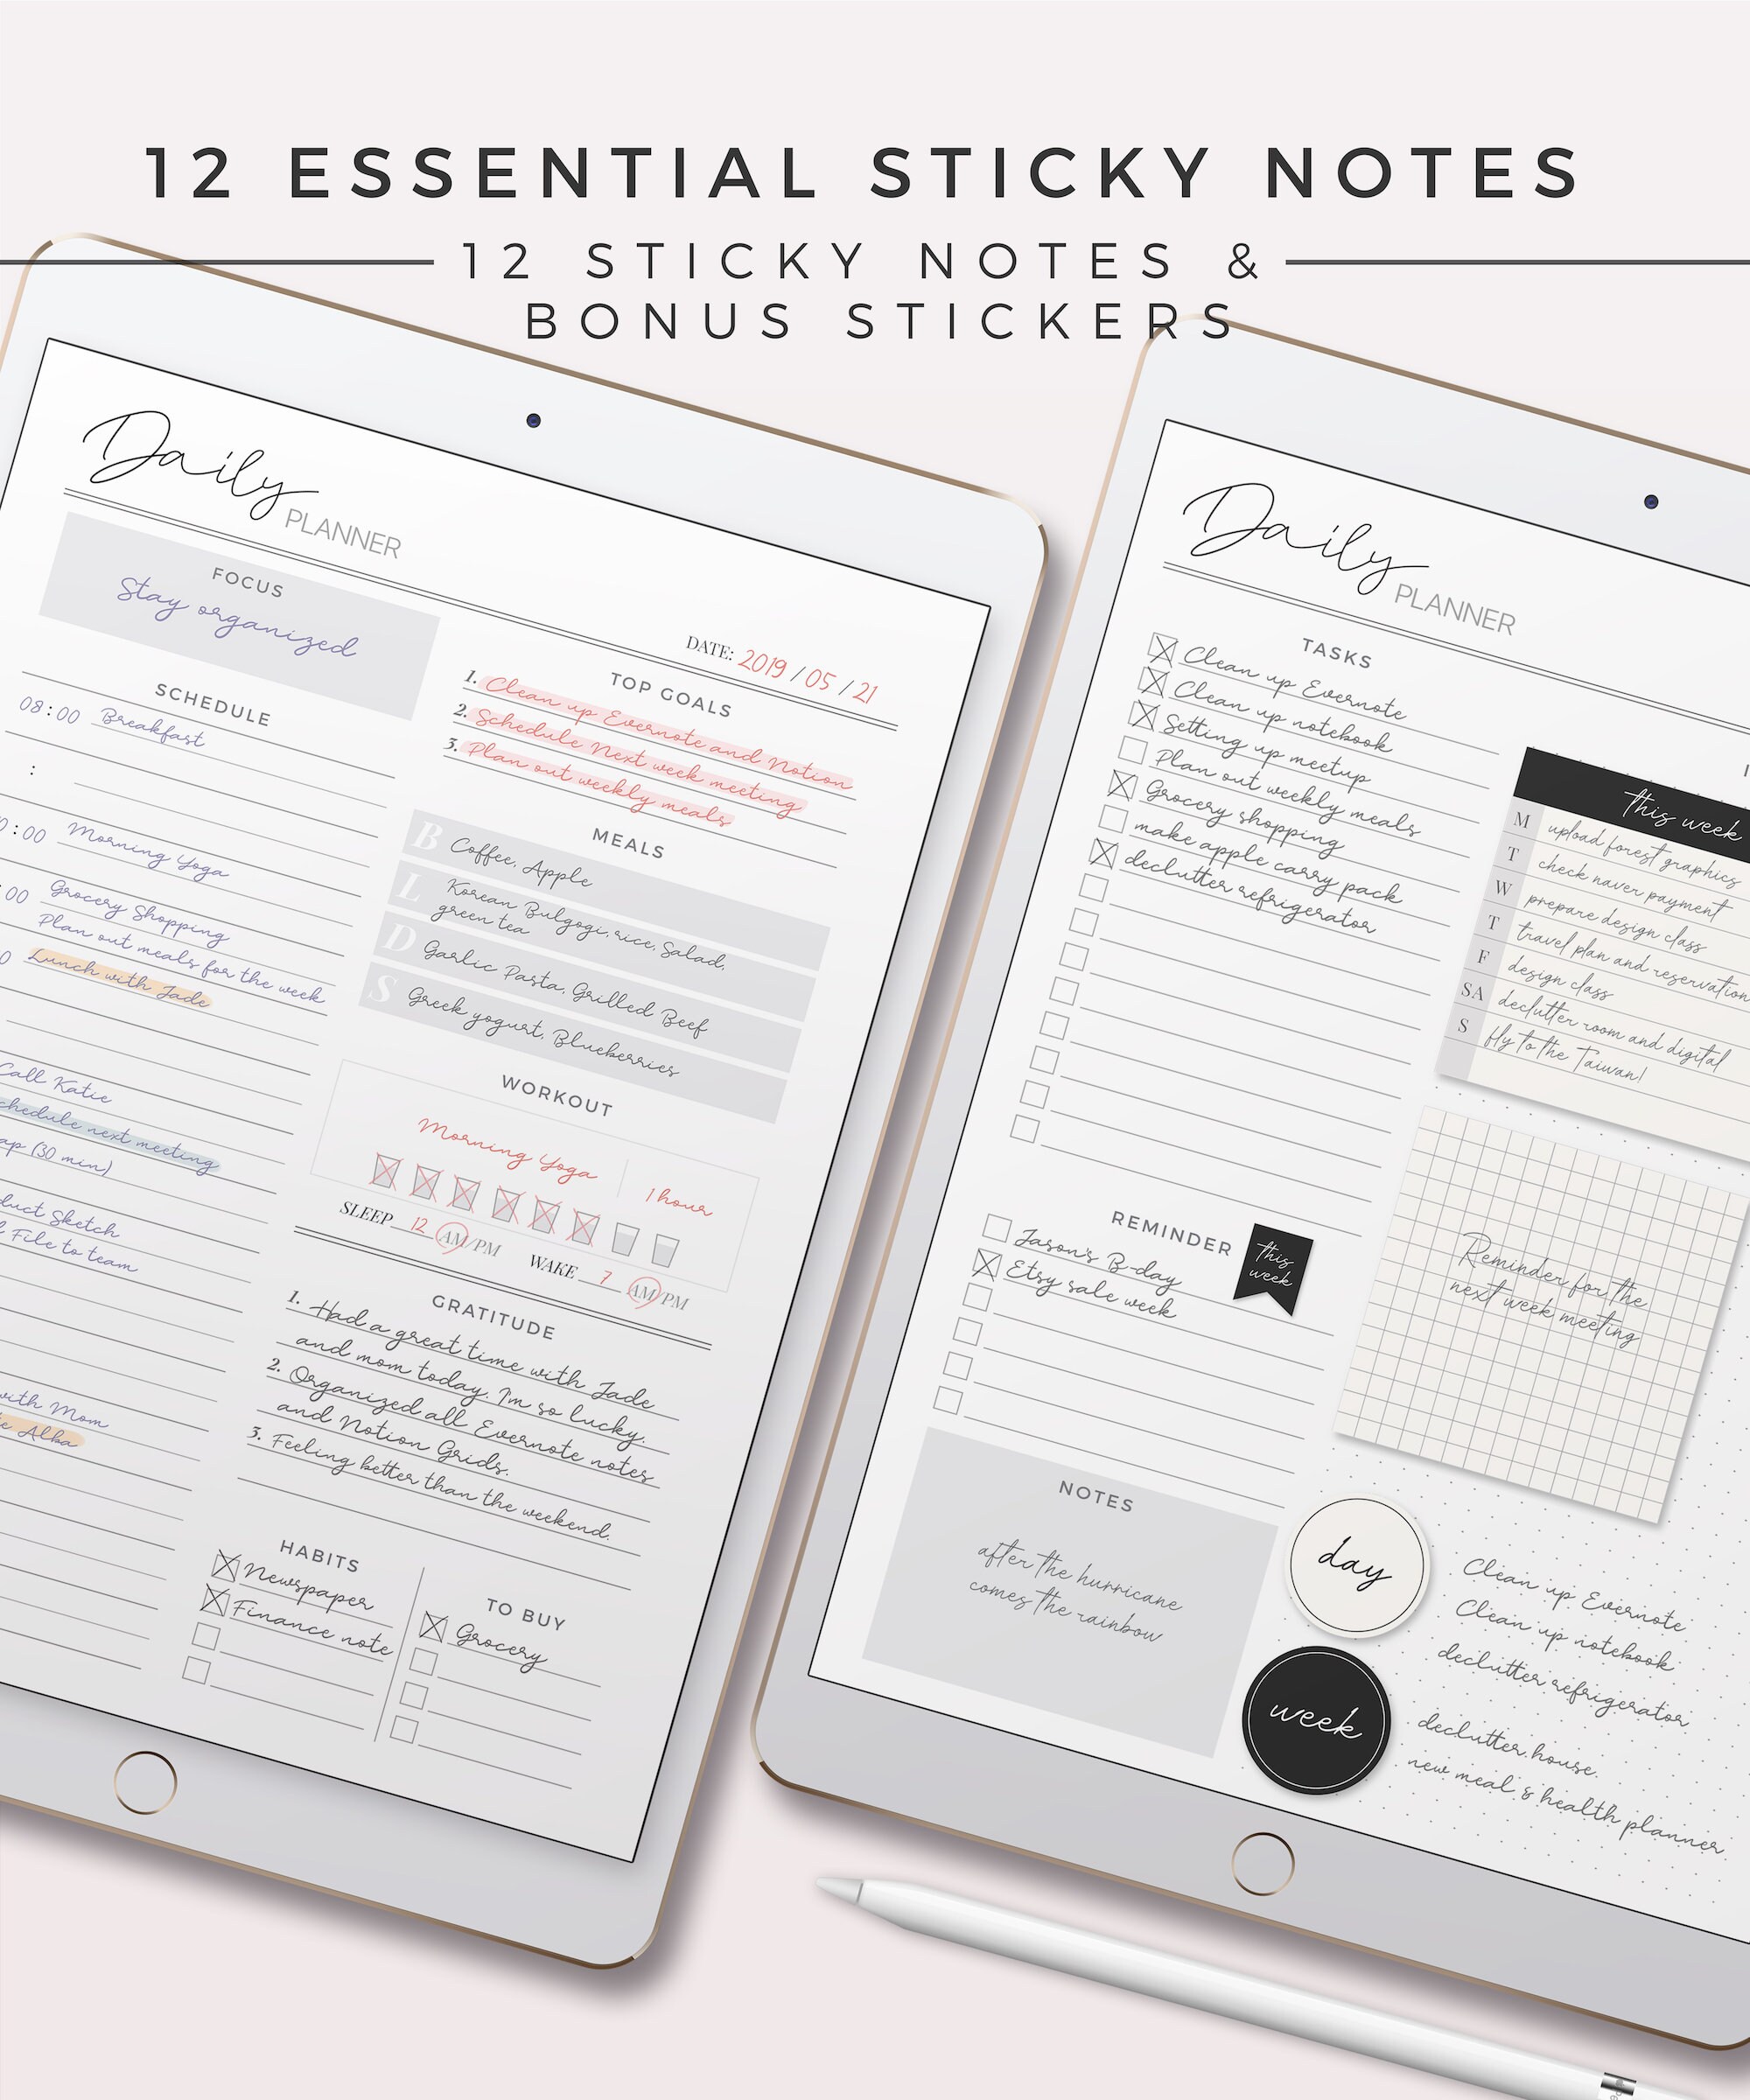 12 ESSENTIAL STICKY NOTES
12 STICKY NOTES &
BONUS STICKERS
Daily
PLANNER
FOCUS
Stay organized
SCHEDULE
08:00 Breakfast
:
:00 Morning Yoga
:00 Grocery Shopping
Plan out meals for the week
Lunch with Jade
Call Katie
schedule next meeting
(30 min)
Sketch
File to team
with Mom
Alba
DATE: 2019 / 05 / 21
TOP GOALS
1. Clean up Evernote and Notion
2. Schedule Next week meeting
3. Plan out weekly meals
MEALS
B Coffee, Apple
L Korean Bulgogi, rice, Salad,
green tea
D Garlic Pasta, Grilled Beef
S Greek yogurt, Blueberries
WORKOUT
Morning Yoga 1 hour
SLEEP 12 AM/PM WAKE 7 AM/PM
GRATITUDE
1. Had a great time with Jade
and mom today. I'm so lucky.
2. Organized all Evernote notes
and Notion Grids.
3. Feeling better than the weekend.
HABITS
Newspaper
Finance note
TO BUY
Grocery
Daily
PLANNER
TASKS
Clean up Evernote
Clean up notebook
Setting up meetup
Plan out weekly meals
Grocery shopping
make apple carry pack
declutter refrigerator
REMINDER
this
week
Jason's B-day
Etsy sale week
NOTES
after the hurricane
comes the rainbow
this week
M upload forest graphics
T check naver payment
W prepare design class
T travel plan and reservation
F design class
SA declutter room and digital
S fly to the Taiwan!
Reminder for the
next week meeting
day
Clean up Evernote
Clean up notebook
declutter refrigerator
week
declutter house
new meal & health planner